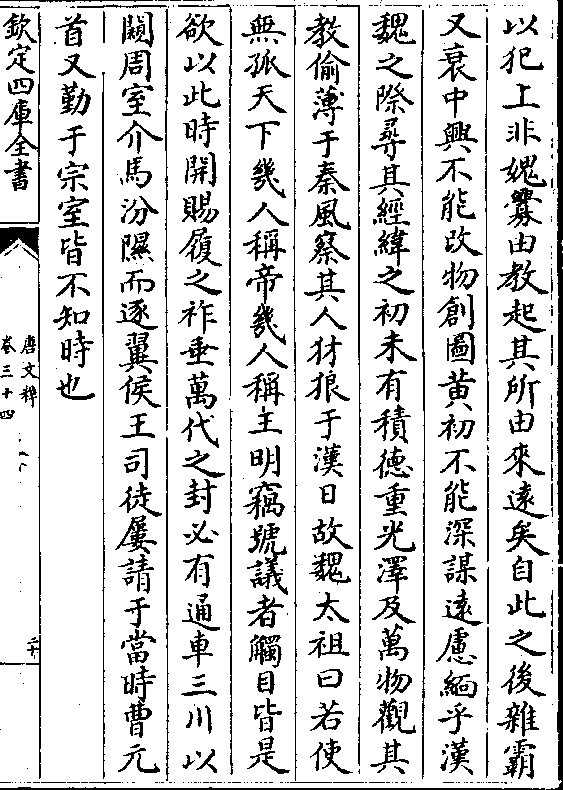 以犯上非媿釁由教起其所由來遠矣自此之後雜霸
又衰中興不能改物創圖黃初不能深謀遠慮緬乎漢
魏之際尋其經緯之初未有積德重光澤及萬物觀其
教偷薄于秦風察其人犲狼于漢日故魏太祖曰若使
無孤天下幾人稱帝幾人稱王明竊號議者觸目皆是
欲以此時開賜履之祚垂萬代之封必有通車三川以
闚周室介馬汾隰而逐翼侯王司徒屢請于當時曹元
首又勤于宗室皆不知時也
欽定四庫全書
唐文粹
卷三十四
二十